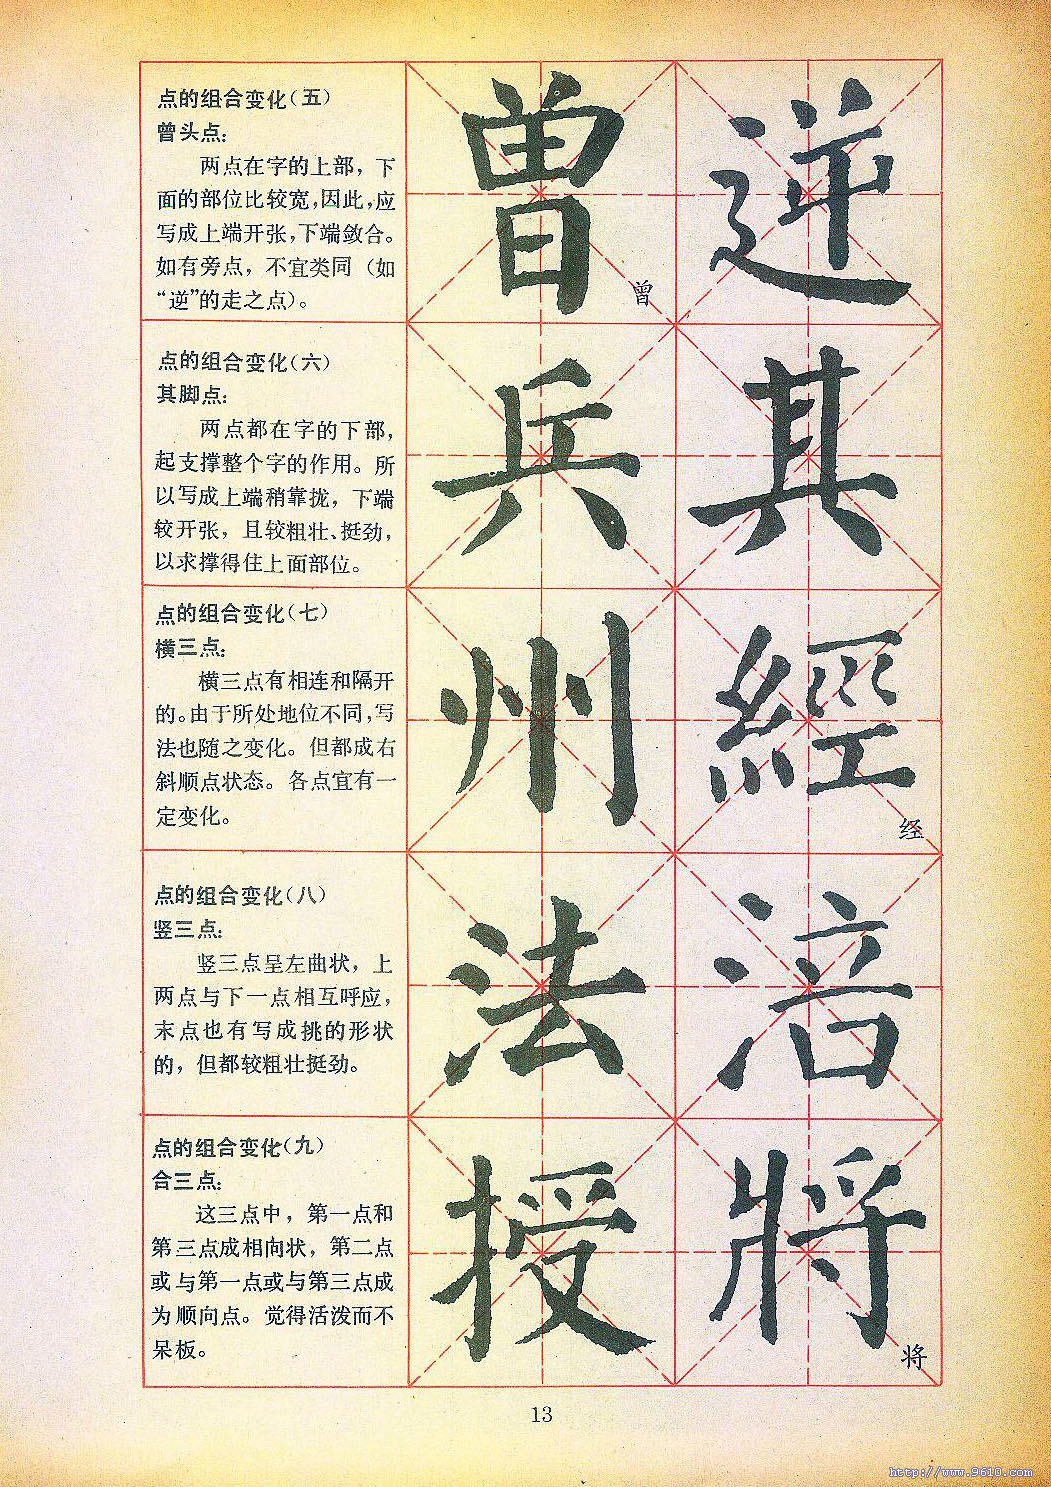 点的组合变化（五）
曾头点：
两点在字的上部，下
面的部位比较宽，因此，应
写成上端开张，下端敛合。
如有旁点，不宜类同（如
“逆”的走之点）。
曾 逆
曾
点的组合变化（六）
其脚点：
两点都在字的下部，
起支撑整个字的作用。所
以写成上端稍靠拢，下端
较开张，且较粗壮、挺劲，
以求撑得住上面部位。
兵 其
点的组合变化（七）
横三点：
横三点有相连和隔开
的。由于所处地位不同，写
法也随之变化。但都成右
斜顺点状态。各点宜有一
定变化。
州 經
经
点的组合变化（八）
竖三点：
竖三点呈左曲状，上
两点与下一点相互呼应，
末点也有写成挑的形状
的，但都较粗壮挺劲。
法 涪
点的组合变化（九）
合三点：
这三点中，第一点和
第三点成相向状，第二点
或与第一点或与第三点成
为顺向点。觉得活泼而不
呆板。
授 將
将
13
http://www.9610.com